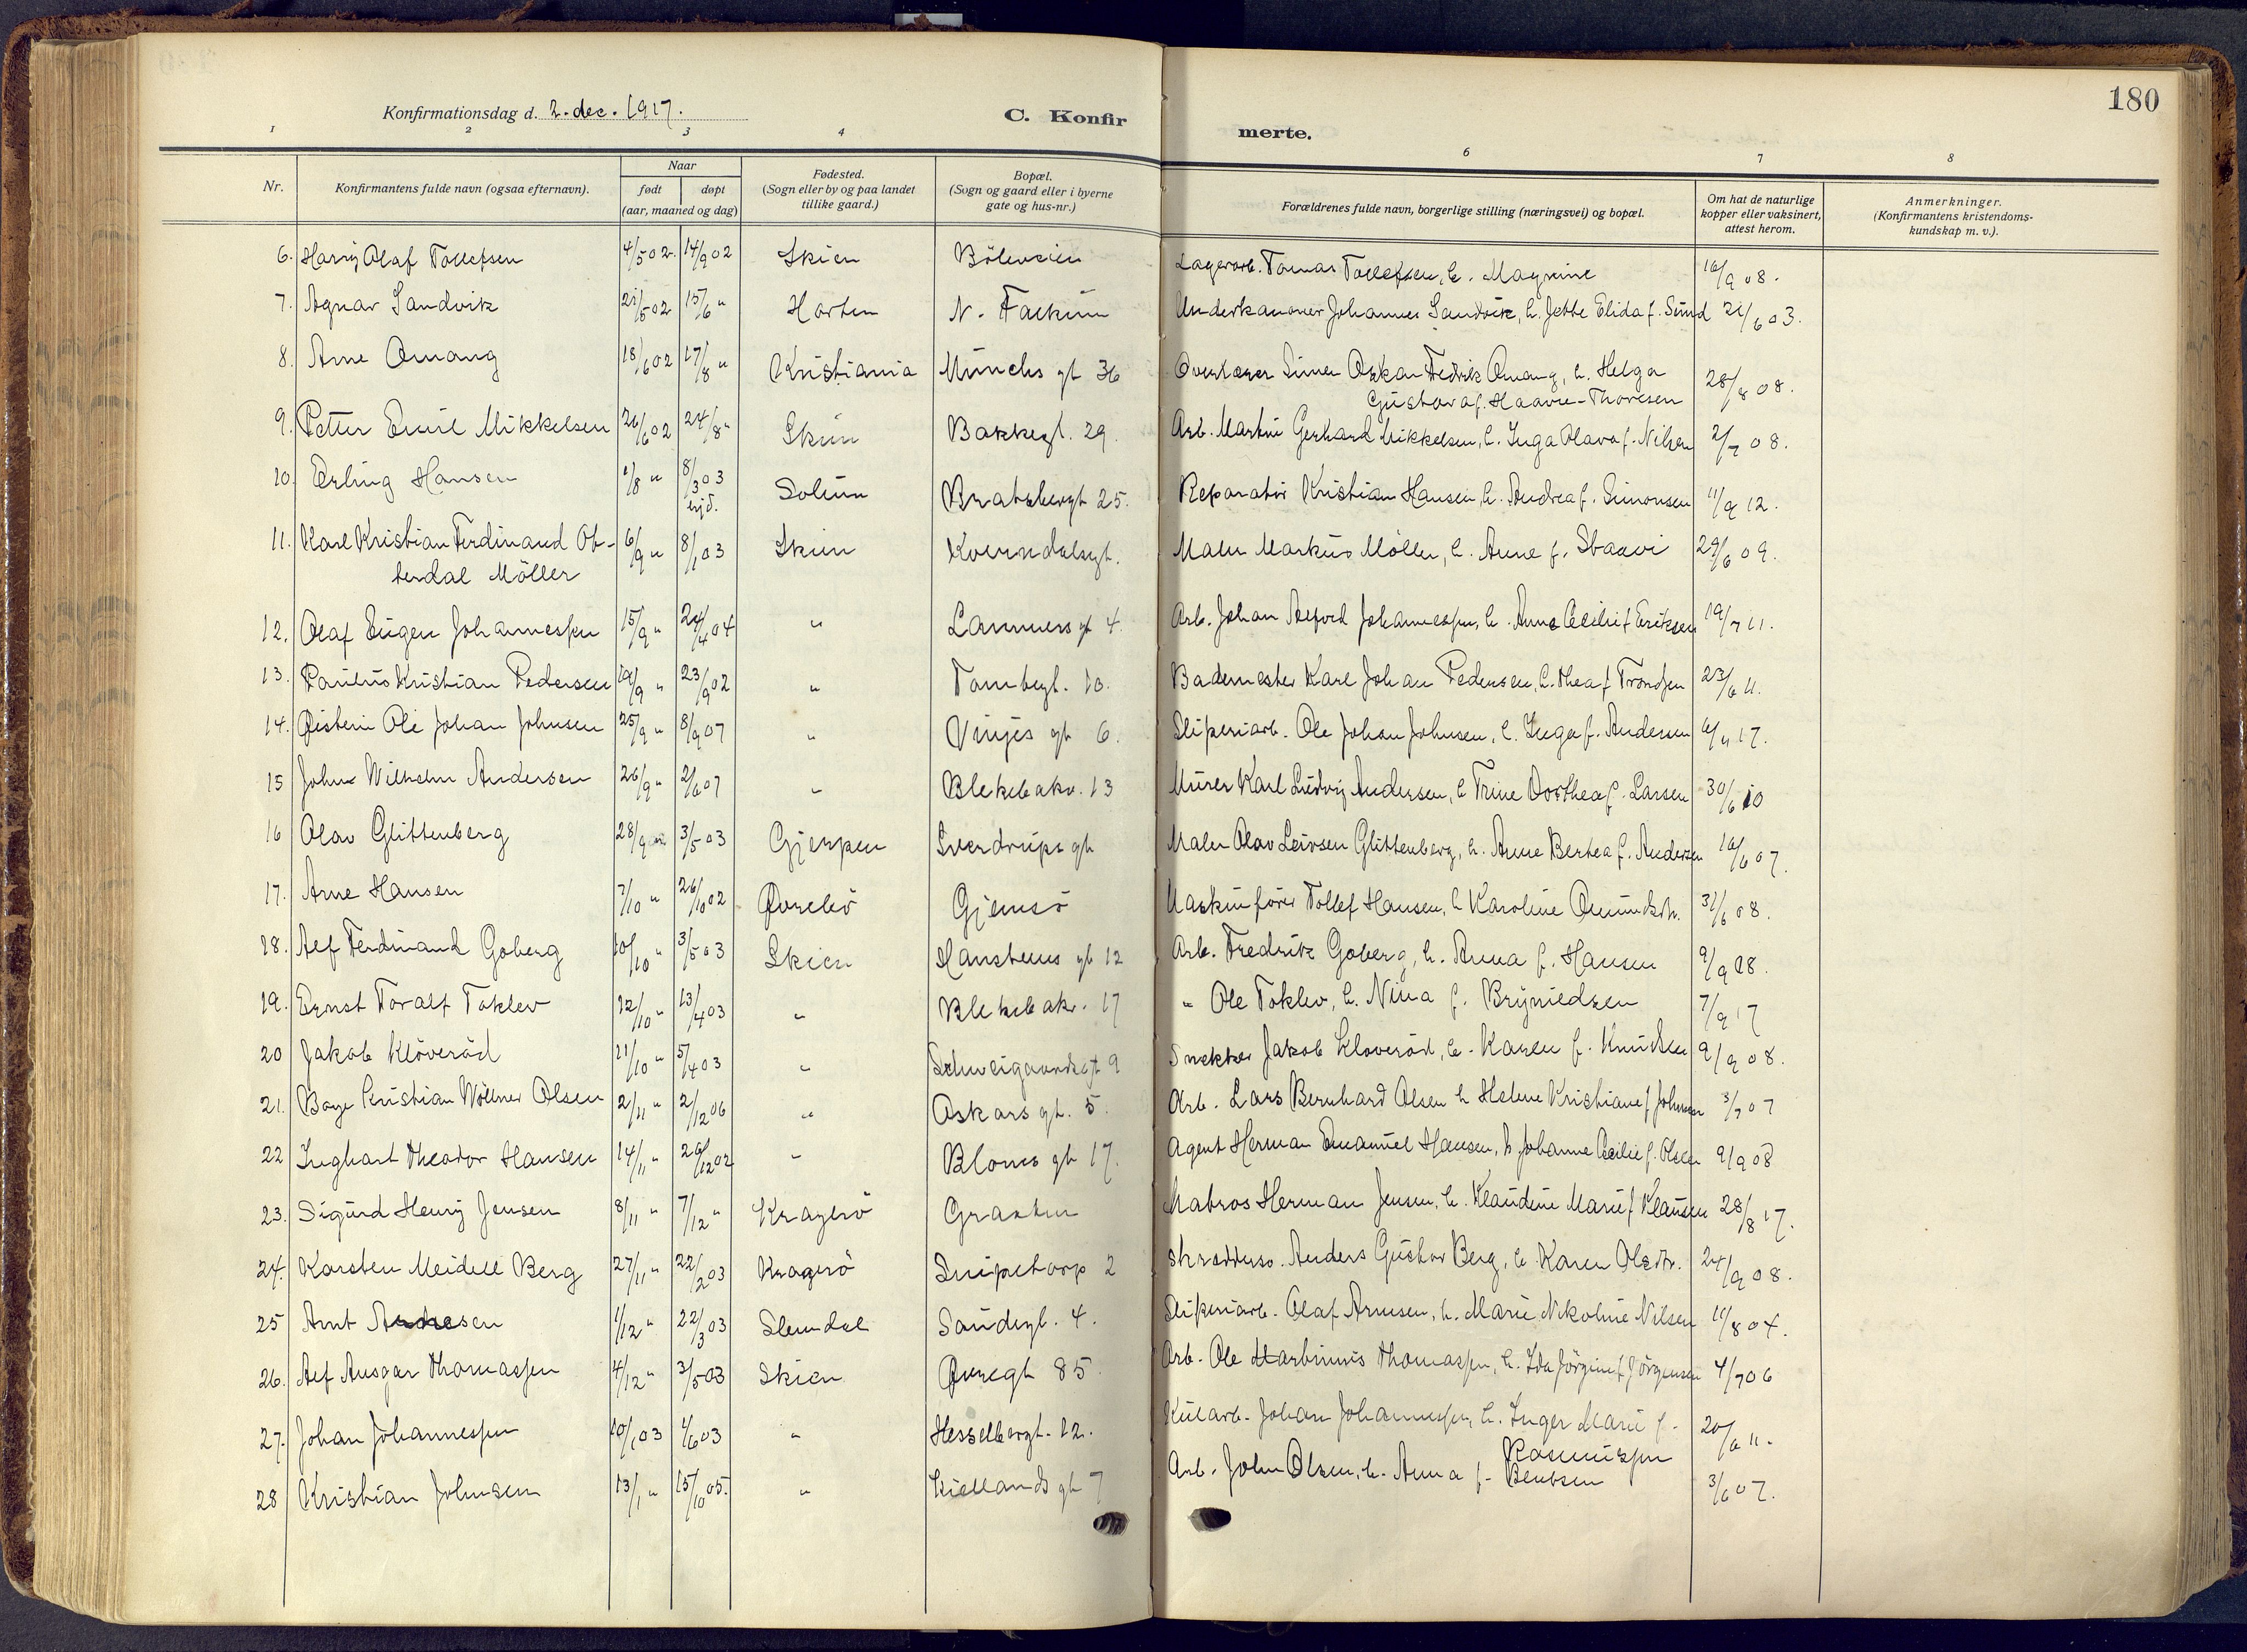 180
Konfirmationsdag d. 2. dec. 1917.
C. Konfirmerte.
1 2 3 4 6 7 8
Nr.
Konfirmantens fulde navn (ogsaa efternavn).
Naar
født døpt
(aar, maaned og dag)
Fødested.
(Sogn eller by og paa landet
tillike gaard.)
Bopæl.
(Sogn og gaard eller i byerne
gate og hus-nr.)
Forældrenes fulde navn, borgerlige stilling (næringsvei) og bopæl.
Om hat de naturlige
kopper eller vaksinert,
attest herom.
Anmerkninger.
(Konfirmantens kristendoms-
kundskap m. v.).
6. Harry Olaf Tollefsen 4/5 02 14/9 02 Skien Böleveien Lagerarb. Tomas Tollefsen, h. Magnine 16/9 08.
7. Agnar Sandvik 21/5 02 15/6 " Horten N. Falkum Underkanoner Johannes Sandvik, h. Jette Elida f. Sund 21/6 03.
8. Arne Omang 18/6 02 17/8 " Kristiania Münchs gt 36 Overlærer Simen Oskar Fredrik Omang, h. Helga
Gustava f. Haavie-Thoresen 28/8 08.
9. Petter Emil Mikkelsen 26/6 02 24/8 " Skien Bakkegt. 29. Arb. Martin Gerhard Mikkelsen, h. Inga Olava f. Nilsen 2/7 08.
10. Erling Hansen 1/8 " 8/3 03 Solum Bratsbergt 25. Reparatör Kristian Hansen, h. Andrea f. Simonsen 11/9 12.
11. Karl Kristian Ferdinand Ot-
terdal Möller 6/9 " 8/1 03 Skien Kverndalsgt. Maler Markus Möller, h. Anne f. Staavi 29/6 09.
12. Olaf Eugen Johannessen 15/9 " 24/4 04 " Lammers gt 4. Arb. Johan Alfred Johannessen, h. Anne Cecilie f Eriksen 19/7 11.
13. Paulus Kristian Pedersen 19/9 " 23/9 02 " Tombegt. 10. Bademester Karl Johan Pedersen, h. Thea f Trondsen 23/6 11.
14. Øistein Ole Johan Johnsen 25/9 " 8/9 07 " Vinjes gt 6. Sliperiarb. Ole Johan Johnsen, h. Inga f. Andersen 6/11 17.
15 John Wilhelm Andersen 26/9 " 2/6 07 " Blekebakv. 13 Murer Karl Ludvig Andersen, h Trine Dorthea f. Larsen 30/6 10
16 Olav Glittenberg 28/9 " 3/5 03 Gjerpen Sverdrups gt Maler Olav Leivsen Glittenberg, h. Anne Bertea f. Andersen 16/6 07.
17. Arne Hansen 7/10 " 26/10 02 Øvrebö Gjemsö Maskinförer Tollef Hansen, h Karoline Omundsdtr. 31/6 08.
18. Alf Ferdinand Goberg 10/10 " 3/5 03 Skien Hansteens gt 12 Arb. Fredrik Goberg, h. Anna f. Hansen 9/9 08.
19. Ernst Toralf Toklev 12/10 " 13/4 03 " Blekebakv. 17 " Ole Toklev, h. Nina f. Brynildsen 7/9 17
20 Jakob Klöveröd 21/10 " 5/4 03 " Schweigaardsgt 9 Snekker Jakob Kloveröd, h. Karen f. Knudsen 9/9 08.
21. Boye Kristian Wöllner Olsen 2/11 " 2/12 06 " Oskars gt. 5. Arb. Lars Bernhard Olsen h Helene Kristiane f Johnsen 3/7 07
22 Inghart Theodor Hansen 14/11 " 26/12 02 " Bloms gt 17. Agent Herman Emanuel Hansen, h Johanne Cecilie f. Olsen 9/9 08
23. Sigurd Henry Jensen 8/11 " 7/12 " Kragerö Graaten Matros Herman Jensen, h. Klaudine Marie f Klausen 28/8 17.
24. Karsten Meidell Berg 27/11 " 22/2 03 Kragerö Snipetorp 2 Skræddersv. Anders Gustav Berg, h. Karen Olsdtr. 24/9 08.
25 Arnt Arnesen 1/12 " 22/3 03 Slemdal Sandegt. 4. Sliperiarb. Olaf Arnesen, h. Marie Nikoline Nilsen 11/8 04.
26. Alf Ansgar Thomassen 4/12 " 3/5 03 Skien Øvregt 85. Arb. Ole Martinius Thomassen, h. Ida Jörgine f Jörgensen 4/7 06
27. Johan Johannessen 10/1 03 1/6 03 " Hesselbergt. 12. Kularb. Johan Johannessen, h. Inger Marie f.
Rasmussen 20/6 11.
28 Kristian Johnsen 13/1 " 15/10 05. " Kiellands gt 7 Arb. John Olsen, h. Anna f. Bentsen 3/6 07.